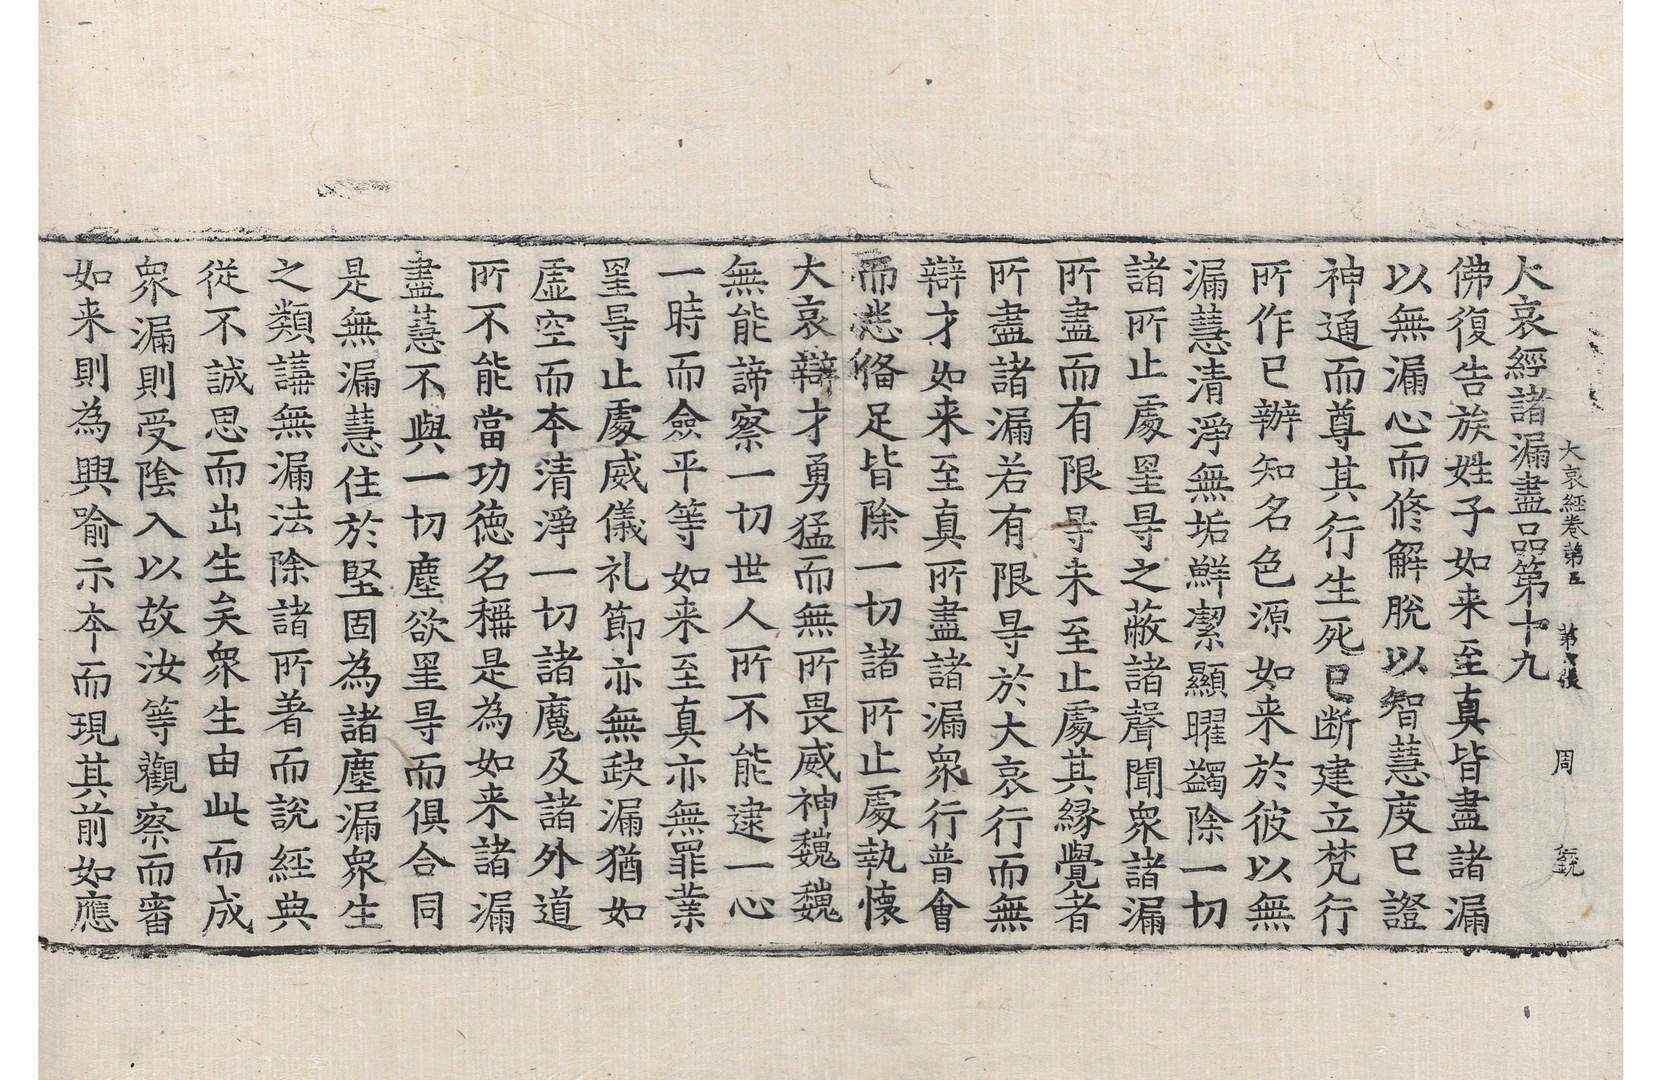 大哀經卷第五 第 張 周
大哀經諸漏盡品第十九
佛復告族姓子如来至真皆盡諸漏
以無漏心而脩解脫以智慧度已證
神通而尊其行生死已断建立梵行
所作已辦知名色源如来於彼以無
漏慧清淨無垢鮮潔顯曜蠲除一切
諸所止處罣㝵之蔽諸聲聞衆諸漏
所盡而有限㝵未至止處其縁覺者
所盡諸漏若有限㝵於大哀行而無
辯才如来至真所盡諸漏衆行普會
而悉俻足皆除一切諸所止處執懷
大哀辯才勇猛而無所畏威神巍巍
無能諦察一切世人所不能逮一心
一時而僉平等如来至真亦無罪業
罣㝵止處威儀礼節亦無缺漏猶如
虛空而夲清淨一切諸魔及諸外道
所不能當功徳名稱是為如来諸漏
盡慧不與一切塵欲罣㝵而俱合同
是無漏慧住於堅固為諸塵漏衆生
之類講無漏法除諸所著而說經典
從不誠思而出生矣衆生由此而成
衆漏則受陰入以故汝等觀察而審
如来則為興喻示夲而現其前如應